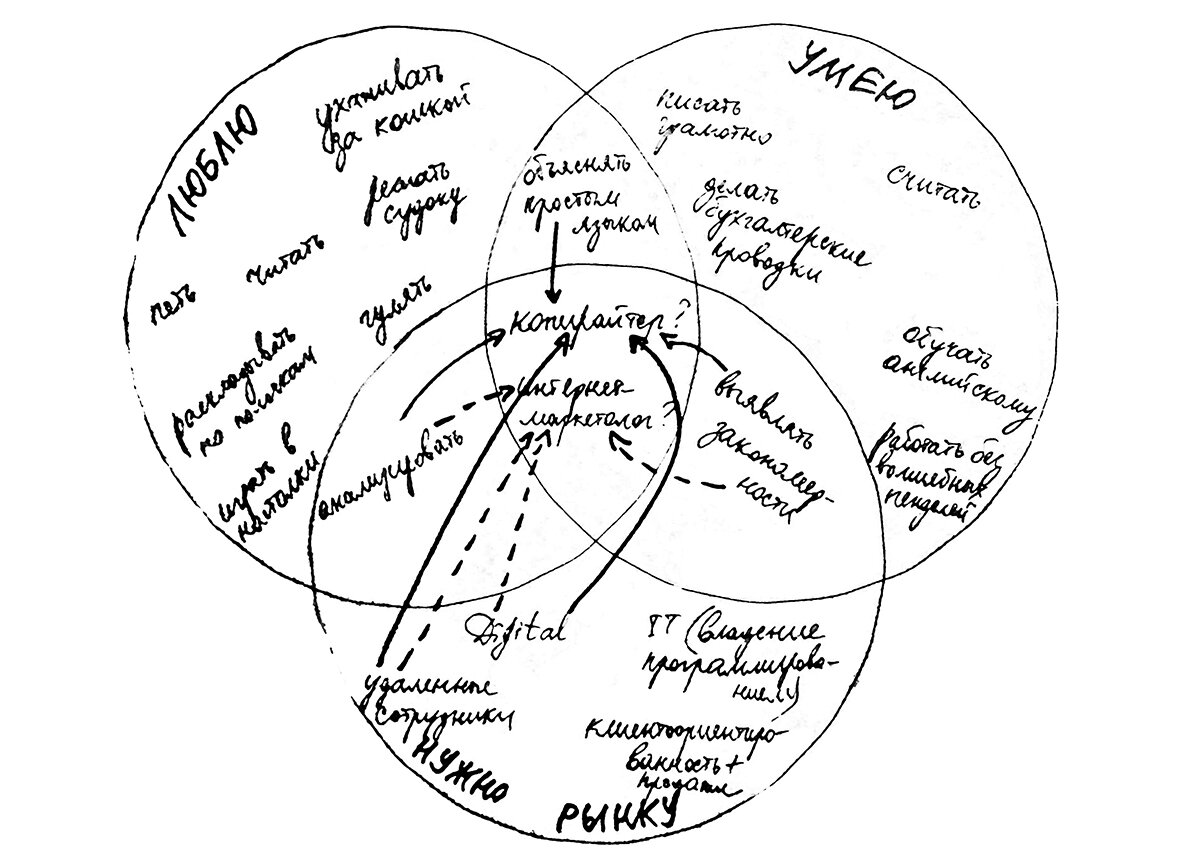 ЛЮБЛЮ
ухаживать
за кошкой
решать
судоку
петь
читать
гулять
раскладывать
по полочкам
играть в
настолки
УМЕЮ
писать
грамотно
считать
делать
бухгалтерские
проводки
обучать
английскому
работать без
волшебных
пенделей
объяснять
простым
языком
копирайтер?
интернет-
маркетолог?
анализировать
выявлять
закономер-
ности
Digital
удаленные
сотрудники
IT (владение
программирова-
нием)
клиентоориентиро-
ванность +
продажи
НУЖНО
РЫНКУ